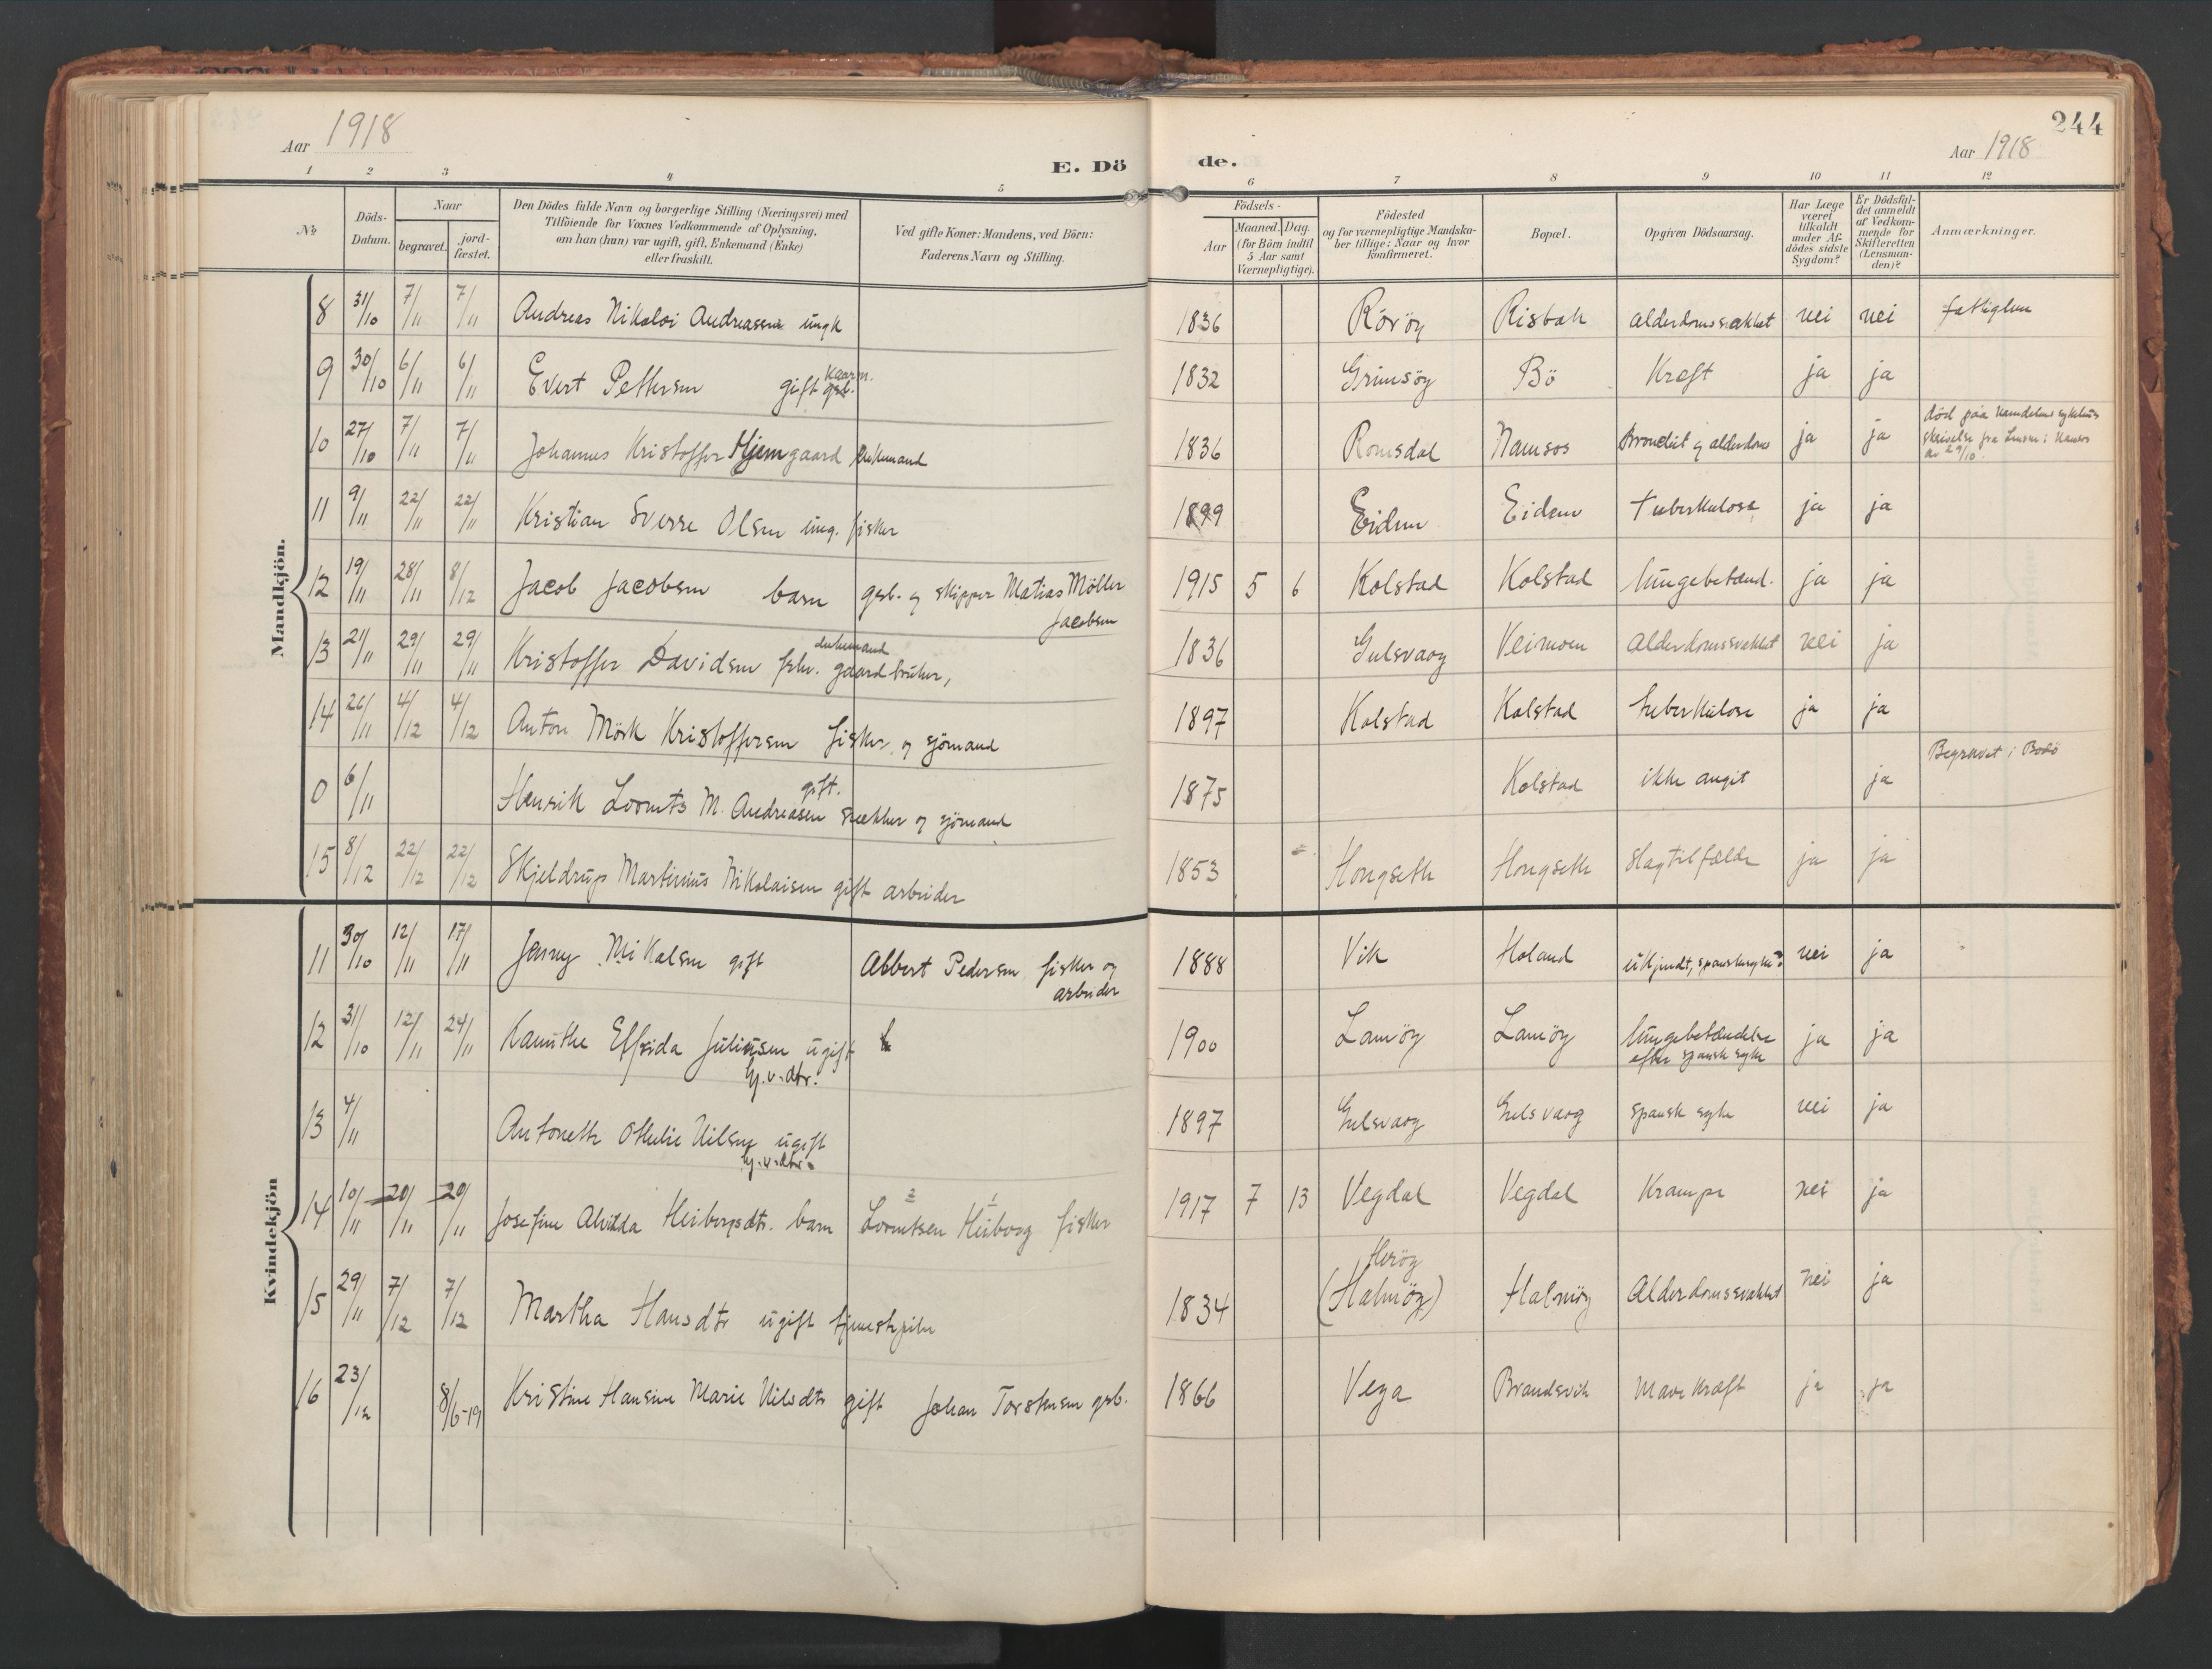 Aar 1918
E. Dö
1 2 3 4 5
№
Döds-
Datum.
Naar
begravet. jord-
fæstet.
Den Dödes fulde Navn og borgerlige Stilling (Næringsvei) med
Tilföiende for Voxnes Vedkommende af Oplysning,
om han (hun) var ugift, gift, Enkemand (Enke)
eller fraskilt.
Ved gifte Koner: Mandens, ved Börn:
Faderens Navn og Stilling.
de.
244
Aar 1918
6 7 8 9 10 11 12
Födsels-
Aar
Maaned. Dag.
(for Börn indtil
5 Aar samt
Værnepligtige).
Födested
og for værnepligtige Mandska-
ber tillige: Naar og hvor
konfirmeret.
Bopæl.
Opgiven Dödsaarsag.
Har Læge
været
tilkaldt
under Af-
dödes sidste
Sygdom?
Er Dödsfal-
det anmeldt
af Vedkom-
mende for
Skifteretten
(Lensman-
den)?
Anmærkninger.
Mandkjön.
8 31/10 7/11 7/11 Andreas Nikolai Andreassen ungk 1836 Röröy Risbak alderdomssvækket nei nei fattiglem
9 30/10 6/11 6/11 Evert Pettersen gift kaarm. gsb. 1832 Grimsöy Bö Kræft ja ja
10 27/10 7/11 7/11 Johannes Kristoffer Hjemgaard enkemand 1836 Romsdal Namsos Bronchit og alderdom ja ja död paa Namdalens sykehus
skrivelse fra Lensm i Namsos
av 29/10.
11 9/11 22/11 22/11 Kristian Sverre Olsen ung. fisker 1899 Eidem Eidem tuberkulose ja ja
12 19/11 28/11 8/12 Jacob Jacobsen barn gsb. og skipper Matias Möller
Jacobsen 1915 5 6 Kolstad Kolstad lungebetænd. ja ja
13 21/11 29/11 29/11 Kristoffer Davidsen fhv. gaardbruker, enkemand 1836 Gulsvaag Veimoen Alderdomssvækket nei ja
14 26/11 4/12 4/12 Anton Mörk Kristoffersen fisker og sjömand 1897 Kolstad Kolstad tuberkulose ja ja
0 6/11 Henrik Lorents M. Andreasen gift. snekker og sjömand 1875 Kolstad ikke angit ja Begravet i Bodö
15 8/12 22/12 22/12 Skjeldrup Martinius Nikolaisen gift arbeider 1853 Hongseth Hongseth slagtilfælde ja ja
Kvindekjön
11 30/10 12/11 17/11 Jenny Mikalsen gift Albert Pedersen fisker og
arbeider 1888 Vik Holand ukjendt, spanskesyke? nei ja
12 31/10 12/11 24/11 Kanutte Effrida Juliussen ugift
hj.v.dtr. 1900 Lamöy Lamöy lungebetændelse
efter spansk syke ja ja
13 4/11 Antonette Othelie Nilsen ugift
hj.v.dtr. 1897 Gulsvaag Gulsvaag spansk syke nei ja
14 10/11 20/11 20/11 Josefine Alvilda Heibergsdtr. barn 2 1
Lorentsen Heiberg fisker 1917 7 13 Vegdal Vegdal Krampe nei ja
15 29/11 7/12 7/12 Martha Hansdtr ugift tjenestepike 1834 Heröy
(Halmöy) Halmöy Alderdomssvækket nei ja
16 23/12 8/6-19 Kristine Hansine Marie Nilsdtr gift Johan Torstensen gsb. 1866 Vega Brandsvik Mavekræft ja ja